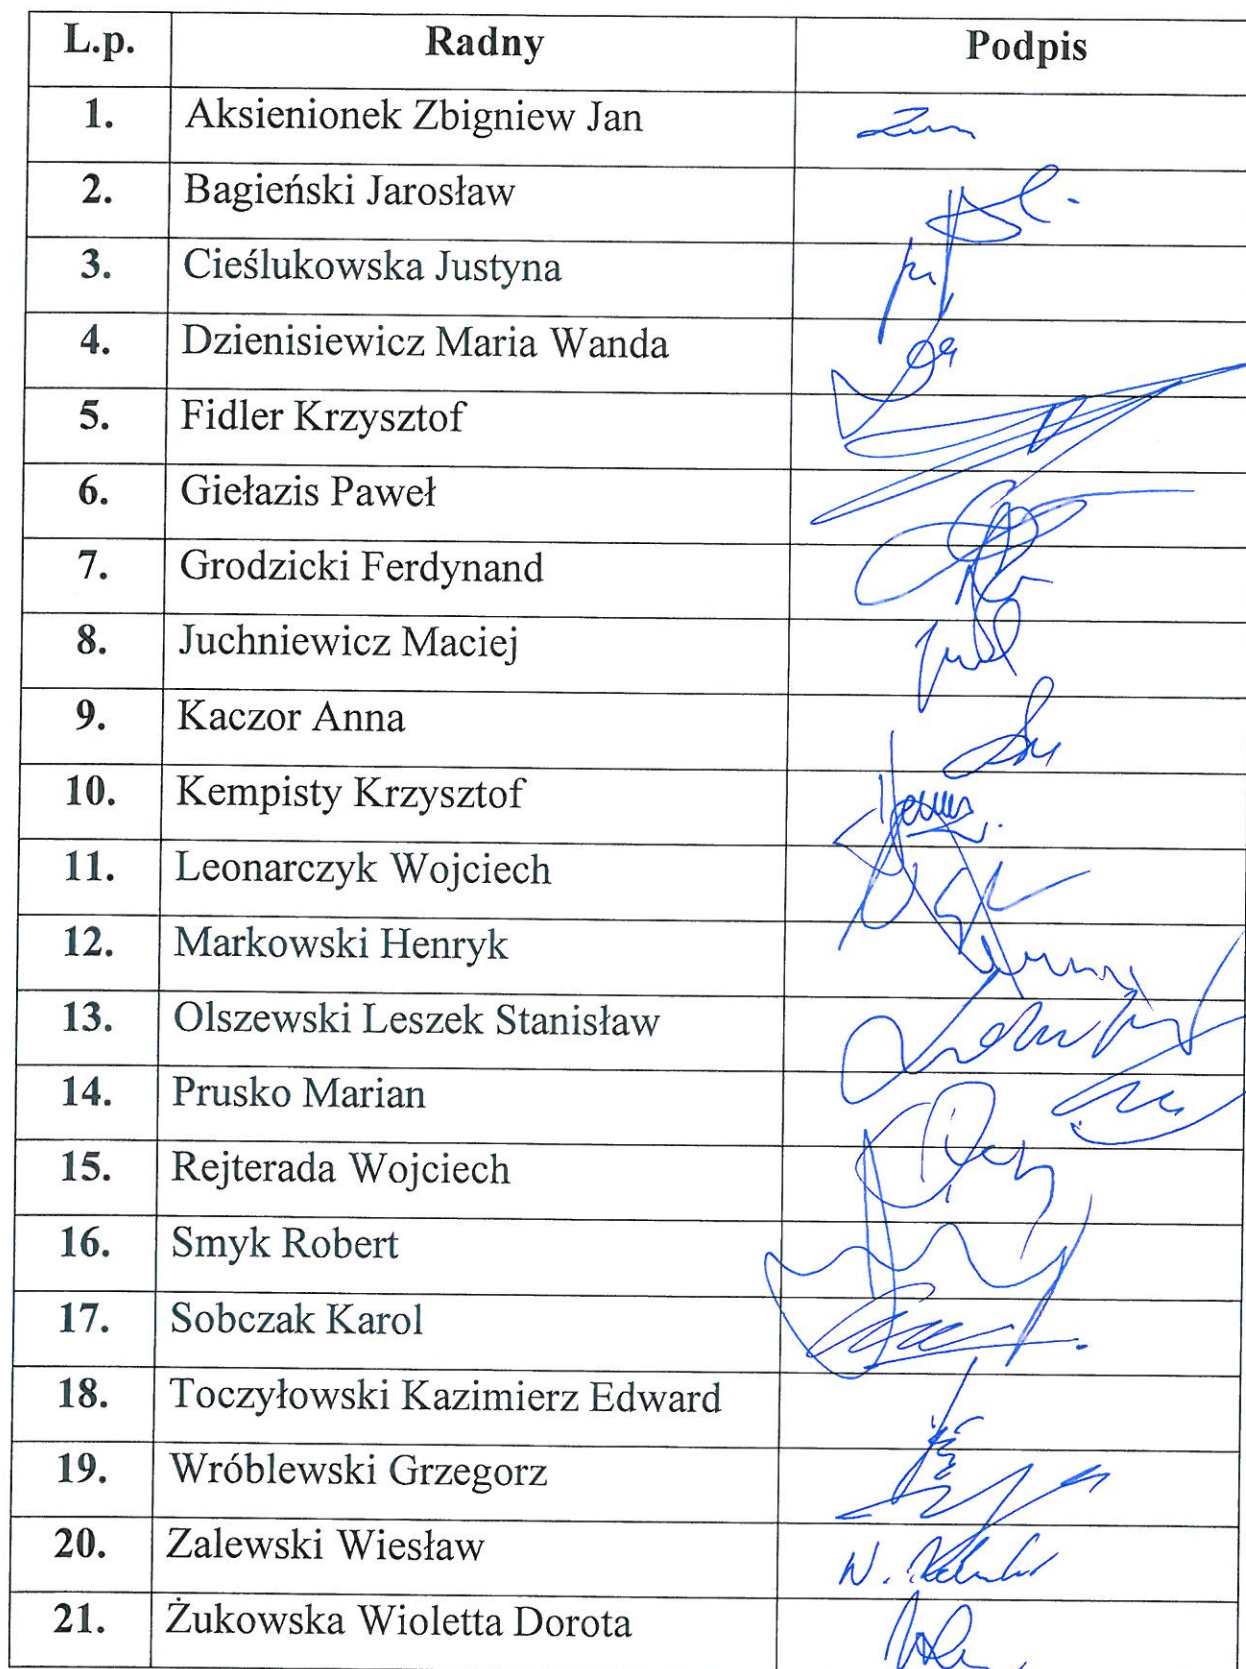 L.p. Radny Podpis
1. Aksienionek Zbigniew Jan
2. Bagieński Jarosław
3. Cieślukowska Justyna
4. Dzienisiewicz Maria Wanda
5. Fidler Krzysztof
6. Giełazis Paweł
7. Grodzicki Ferdynand
8. Juchniewicz Maciej
9. Kaczor Anna
10. Kempisty Krzysztof
11. Leonarczyk Wojciech
12. Markowski Henryk
13. Olszewski Leszek Stanisław
14. Prusko Marian
15. Rejterada Wojciech
16. Smyk Robert
17. Sobczak Karol
18. Toczyłowski Kazimierz Edward
19. Wróblewski Grzegorz
20. Zalewski Wiesław
21. Żukowska Wioletta Dorota